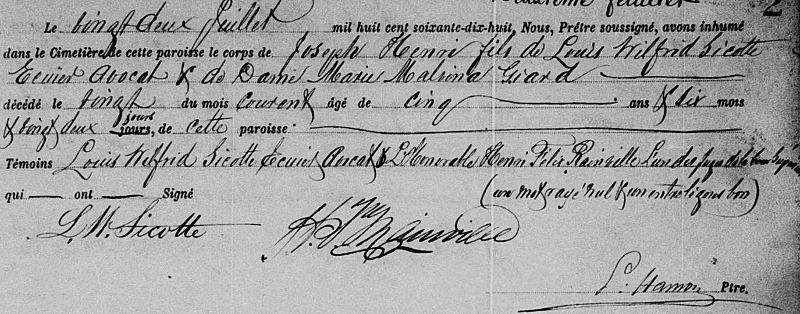 Le vingt deux Juillet mil huit cent soixante-dix-huit, Nous, Prêtre soussigné, avons inhumé
dans le Cimetière de cette paroisse le corps de Joseph Henri fils de Louis Wilfrid Sicotte
Ecuier Avocat & de Dame Marie Malvina Giard
décédé le vingt du mois courent âgé de cinq ans & dix mois
jours
& vingt deux jours, de cette paroisse
Témoins Louis Wilfrid Sicotte Ecuier Avocat & L'Honorable Henri Félix Rainville l'un des juges de la Cour
qui ont Signé (un mot rayé nul & un entreligne bon)
L. W. Sicotte H. F. Rainville
L. Hamon Ptre.